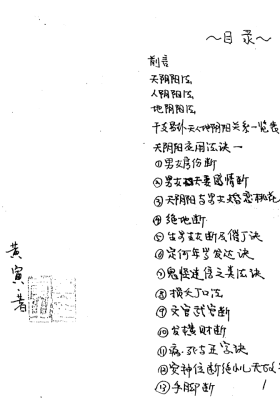 ～目录～
前言
天阴阳法
人阴阳法
地阴阳法
干支易卦天人地阴阳关系一览表
天阴阳应用法诀一
①男女房份断
②男女夫妻感情断
③天阴阳与男女婚恋桃花
④绝地断
⑤生男生女断及借丁诀
⑥定何年易发达诀
⑦鬼怪迷信之类法诀
⑧损人丁口法
⑨文官武官断
⑩发横财断
⑪病、死与正字诀
⑫安神位断绝小儿天
⑬手脚断
1
黄寅·著